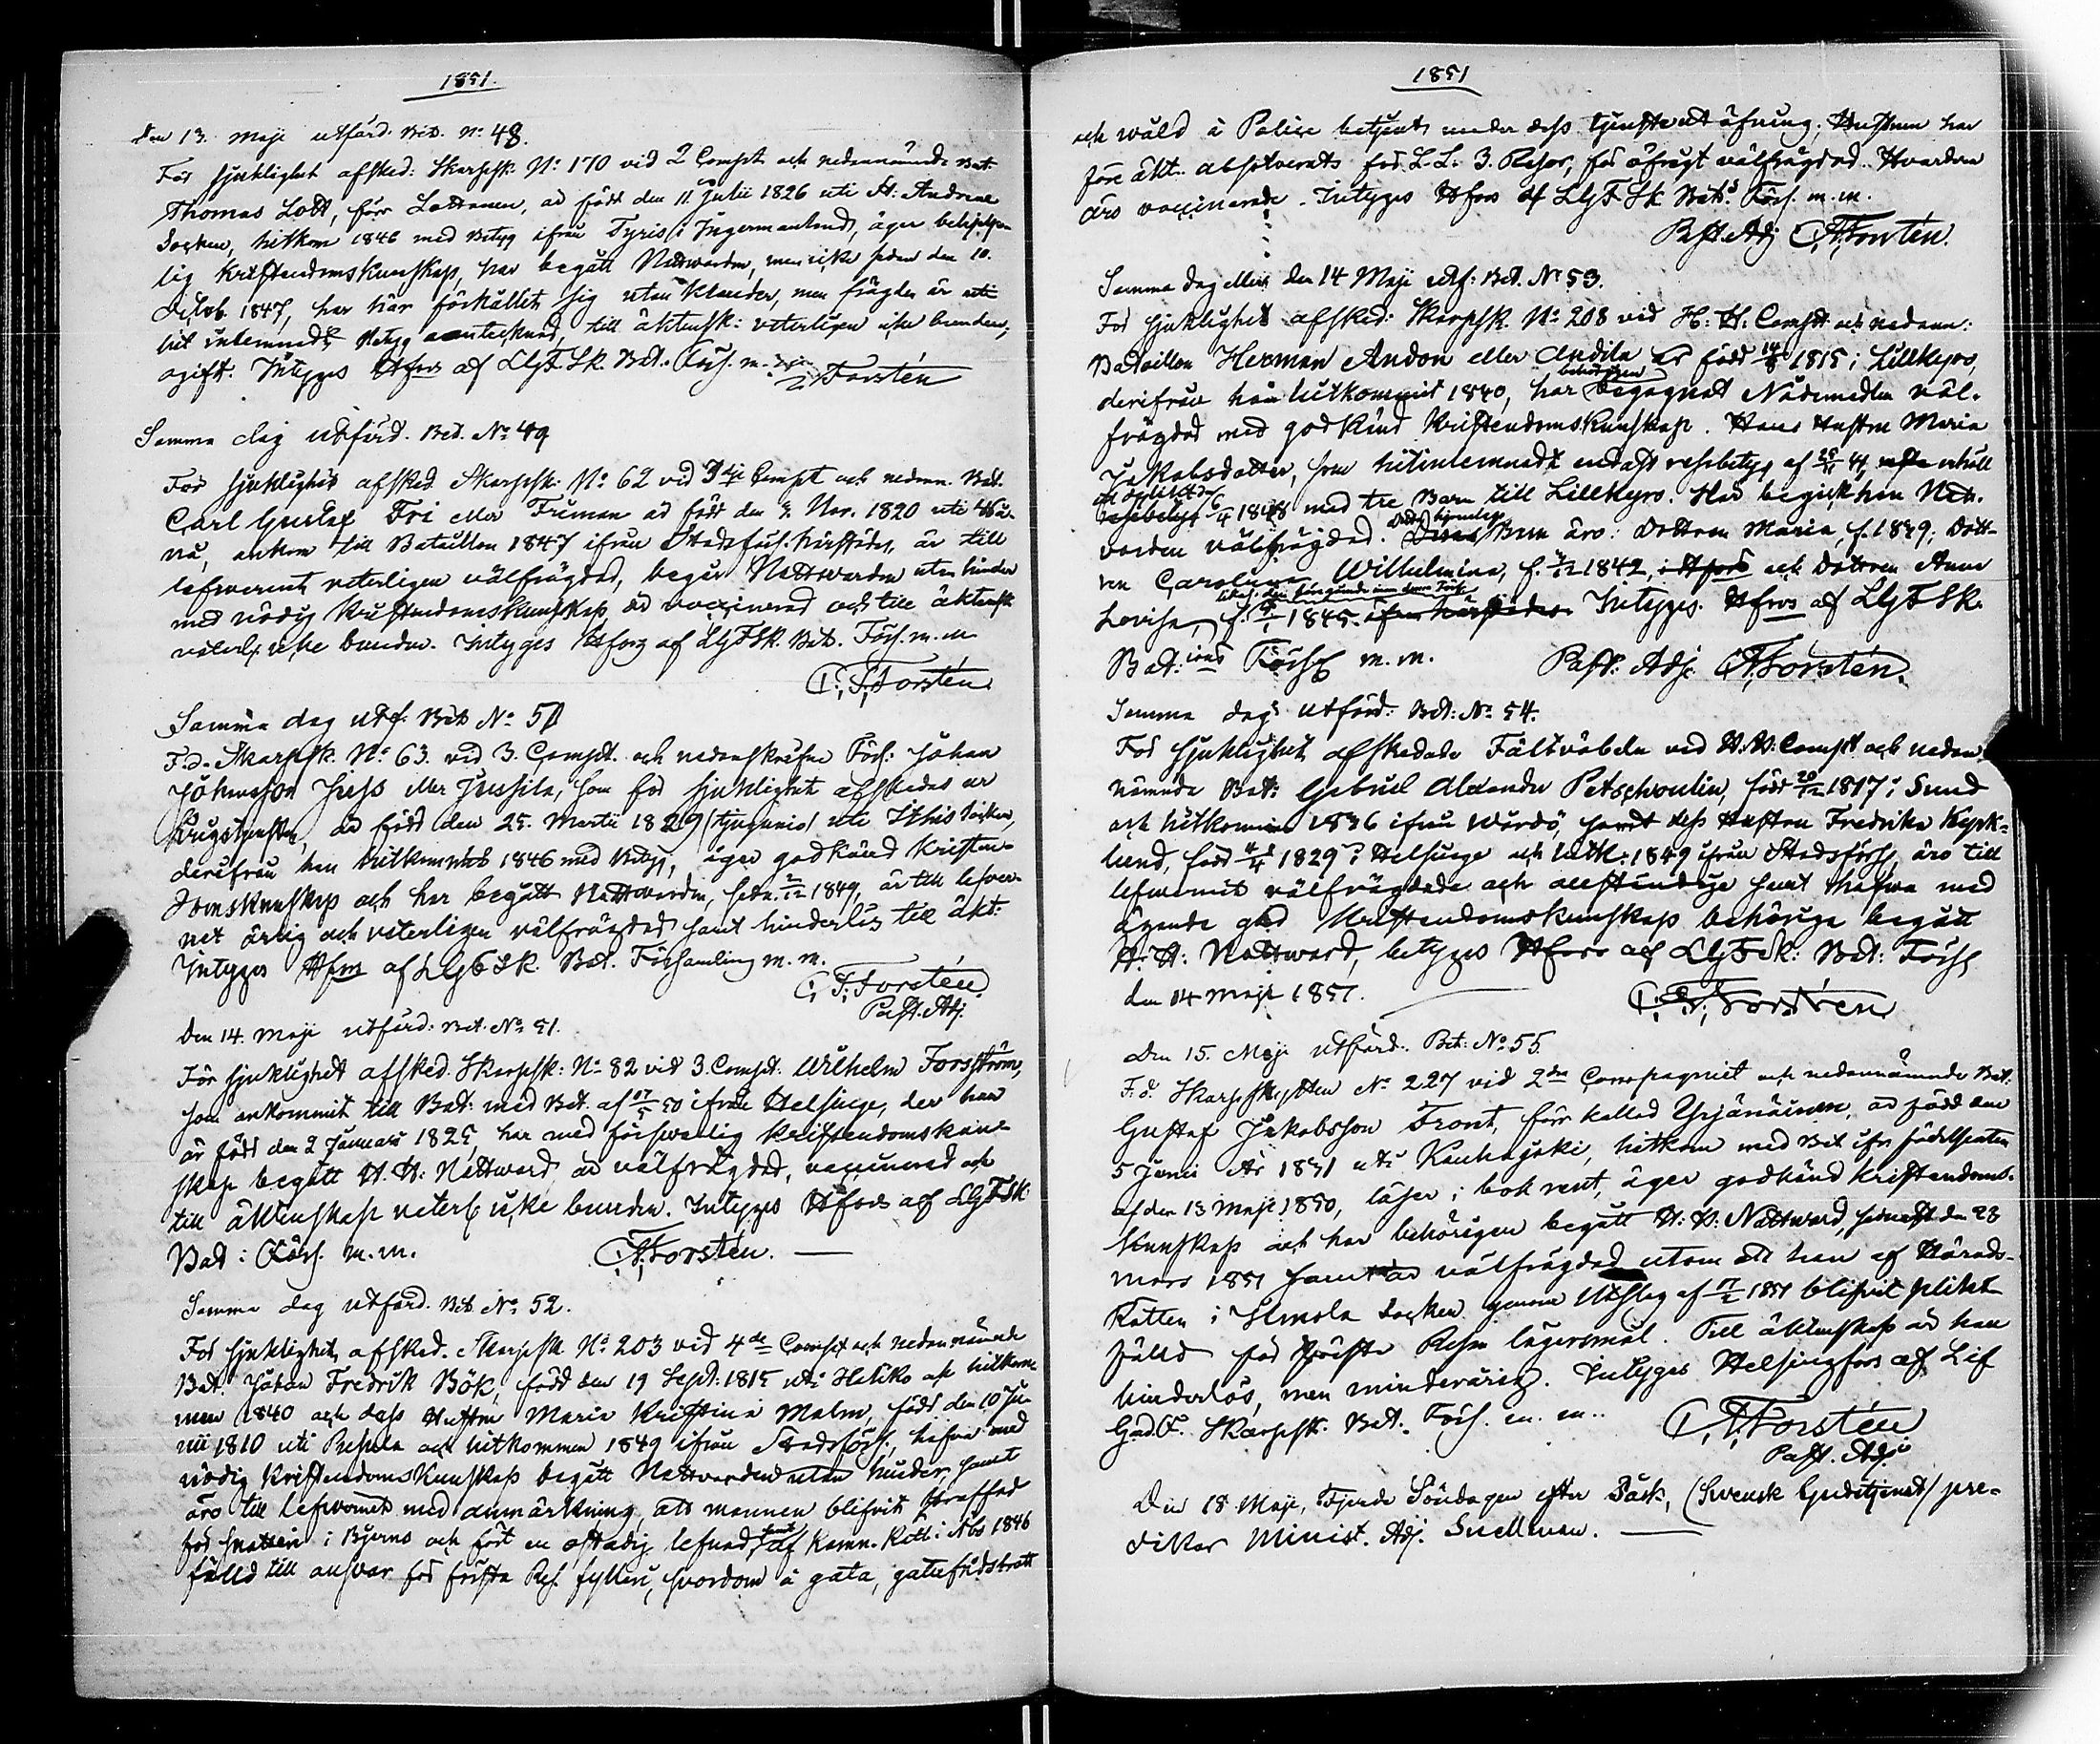 1851.
Den 13. Maji utfärd. Bet. No 48.
För sjuklighet afsked: Skarpsk. No 170 vid 2 Compt. och nedannämnde Bat.
Thomas Lott, förr Lattanen, är född den 11 Julii 1826 uti St. Andreae
Socken, hitkom 1846 med Betyg ifrån Tyris i Ingermanland, äger
lig Kristendomskunskap, har begått Nattvarden, men icke sedan den 10.
Octob. 1847, har här förhållit sig utan klander, men frägden är uti
hit inlemnadt Betyg oantecknad, till äktensk: veterligen icke bunden,
ogift. Intygas Hfors af LGFSk. Bat. Förs. m. m.
Forstén
Samma dag utfärd. Bet. No 49
För sjuklighet afsked. Skarpsk. No 62 vid 3dje Compt och nedann. Bat.
Carl Gustaf Fri eller Friman är född den 7. Nov. 1820 uti
ankom till Bataillon 1847 ifrån Stadsförs. härstädes, är till
lefvernet veterligen välfrägdad, begår Nattvarden utan hinder
med nödig Kristendomskunskap, är vaccinerad och till äktensk.
veterl. icke bunden. Intygas Hfors af LGFSk. Bat. Förs. m. m
C. F. Forstén.
Samma dag utf. Bet. No 50
F. d. Skarpsk. No 63. vid 3. Compt. och nedanskrifne Förs: Johan
Johansson Juss eller Jussila, som för sjuklighet afskedas ur
Krigstjensten, är född den 25. Martii 1829 (tjugunio) uti Ithis Socken,
derifrån han hitkommit 1846 med Betyg, äger godkänd Kristen-
domskunskap och har begått Nattvarden, sedn. 2/12 1849, är till lefver-
net ärlig och veterligen välfrägdad samt hinderlös till äkt.
Intygas Hfors af LGFSk. Bat. Församling m. m.
C. F. Forstén.
Past. Adj.
Den 14. Maji utfärd. Bet. No 51.
För sjuklighet afsked. Skarpsk: No 82 vid 3. Compt: Wilhelm Forsström,
som ankommit till Bat: med Bet. af 17/5 50 ifrån Helsinge, der han
är född den 2 Januari 1825, har med försvarlig kristendomskun-
skap begått H. H: Nattvard är välfrägdad, vaccinerad och
till äktenskap veterl. icke bunden. Intygas Hfors af LGFSk:
Bat: Förs. m. m. C. F. Forstén.
Samma dag utfärd. Bet. No 52.
För sjuklighet afsked. Skarpsk No 203 vid 4de Compt och nedannämde
Bat. Johan Fredrik Bök, född den 19 Sept: 1815 uti Halikko och hitkom-
men 1840 och dess Hustru Maria Kristina Malm, född den 10 Ju-
nii 1810 uti och hitkommen 1849 ifrån Stadsförs., hafva med
nödig Kristendomskunskap begått Nattvarden utan hinder, samt
äro till lefvernet med anmärkning, att mannen blifvit straffad
för snatteri i Bjerno och fört en ostadig lefnad, samt af Kämn. Rätt i Åbo 1846
fälld till ansvar för första Res. fylleri, svordom å gata, gatufridsbrott
1851
och wåld å Police betjent under dess tjensteutöfning. Hustrun har
före äkt. absolverats för L. L. 3. Resor, för öfrigt välfrägdad. Hvardera
äro vaccinerade. Intygas Hfors af LGFSk Bats. Förs. m. m.
Past. Adj C. F. Forstén.
Samma dag eller den 14 Maji utf: Bet. No 53.
För sjuklighet afsked: Skarpsk. No 208 vid H: H. Compt och nedann:
Bataillon Herman Andon eller Andila är född 14/8 1815 i Lillkyro,
behörigen
derifrån han hitkommit 1840, har begagnat Nådemedlen väl-
frägdad med godkänd Kristendomskunskap. Hans Hustru Maria
Jakobsdotter, som hitinlemnadt endast resebetyg af 44, erhöll
1848 med tre Barn till Lillkyro. Har begick hon Natt-
varden välfrägdad. Deras Barn äro: Dottren Maria, f. 1839; Dott-
ren Carolina Wilhelmina, f. 1842, i Hfors och Dottren Anna
Lovisa, f. 1845. ifrån härstädes Intygas. Hfors af LGFSk.
Bat:ions Förs m. m. Past. Adj. C. F. Forstén.
Samma dag utfärd: Bet: No 54.
För sjuklighet afskedade Fältväbeln vid H. H: Compt och nedan-
nämnde Bat: Gabriel Alexander Petschoulin, född 20/12 1817 i Sund
och hitkommen 1836 ifrån Wårdö, samt dess Hustru Fredrika Kyrk-
lund, född 4/4 1829 i Helsinge och hitk: 1849 ifrån Stadsförs, äro till
lefvernet välfrägdade och anständige samt hafva med
ägende god Kristendomskunskap behörige begått
H. H: Nattvard, betygas Hfors af LGFSk: Bat: Förs
den 14 Maji 1851. C. F. Forstén
Den 15. Maji utfärd. Bet: No 55.
F. d. Skarpskytten No 227 vid 2dra Compagniet och nedannämnde Bat.
Gustaf Jakobsson Front, förr kallad Yrjänäinen, är född den
5 Junii År 1831 uti Kauhajoki, hitkom med Bet. ifr födelseorten
af den 13 Maji 1850, läser i bok rent, äger godkänd Kristendoms-
kunskap och har behörigen begått H: H: Nattvard, senast den 23
Mars 1851 samt är välfrägdad utom att han af Härads-
Rätten i Ilmola Socken genom Utslag af 1851 blifvit plikt-
fälld för första Resan lägersmål. Till äktenskap är han
hinderlös, men minderårig. Intygas Helsingfors af Lif
Gard. F. Skarpsk. Bat. Förs. m. m.. C. F. Forstén
Past. Adj.
Den 18 Maji, Fjerde Söndagen efter Påsk, (Svensk Gudstjenst) pre-
dikar Minist. Adj. Snellman.